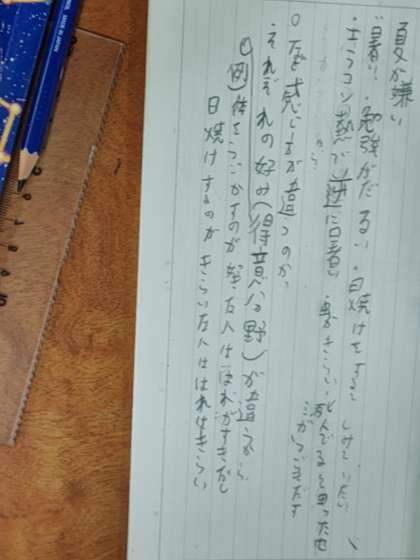 夏が嫌い
暑い・勉強がだるい・日焼けをすると しみて いたい
・エアコン 熱で逆に暑い ・虫がきらい・死んでると思ったセミがうごきだす
から
○なぜ感じ方が違うのか。
・それぞれの好み(得意分野)が違うから
例)体をうごかすのが好きな人は はれがすきだし
日焼けするのがきらいな人は はれはきらい